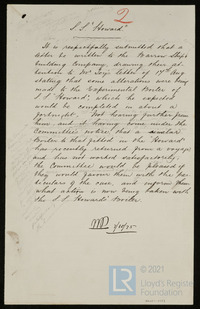 2
S.S. "Howard"
It is respectfully submitted that a
letter be written to the Barrow Ship
building Company, drawing their at-
tention to Mr. letter of 14th Aug
stating that some alterations were being
made to the Experimental Boiler of
S.S. "Howard", which he expected
would be completed in about a
fortnight. Not hearing further from
them and it having come under the
Committee's notice that a similar
boiler to that fitted in the "Howard"
has recently returned from a voyage
and has not worked satisfactorily,
the Committee would be pleased if
they would favor them with the par-
ticulars of the case, and inform them
what action is now being taken with
the S.S. Howard's boiler.
© 2021
Lloyd's Register
Foundation